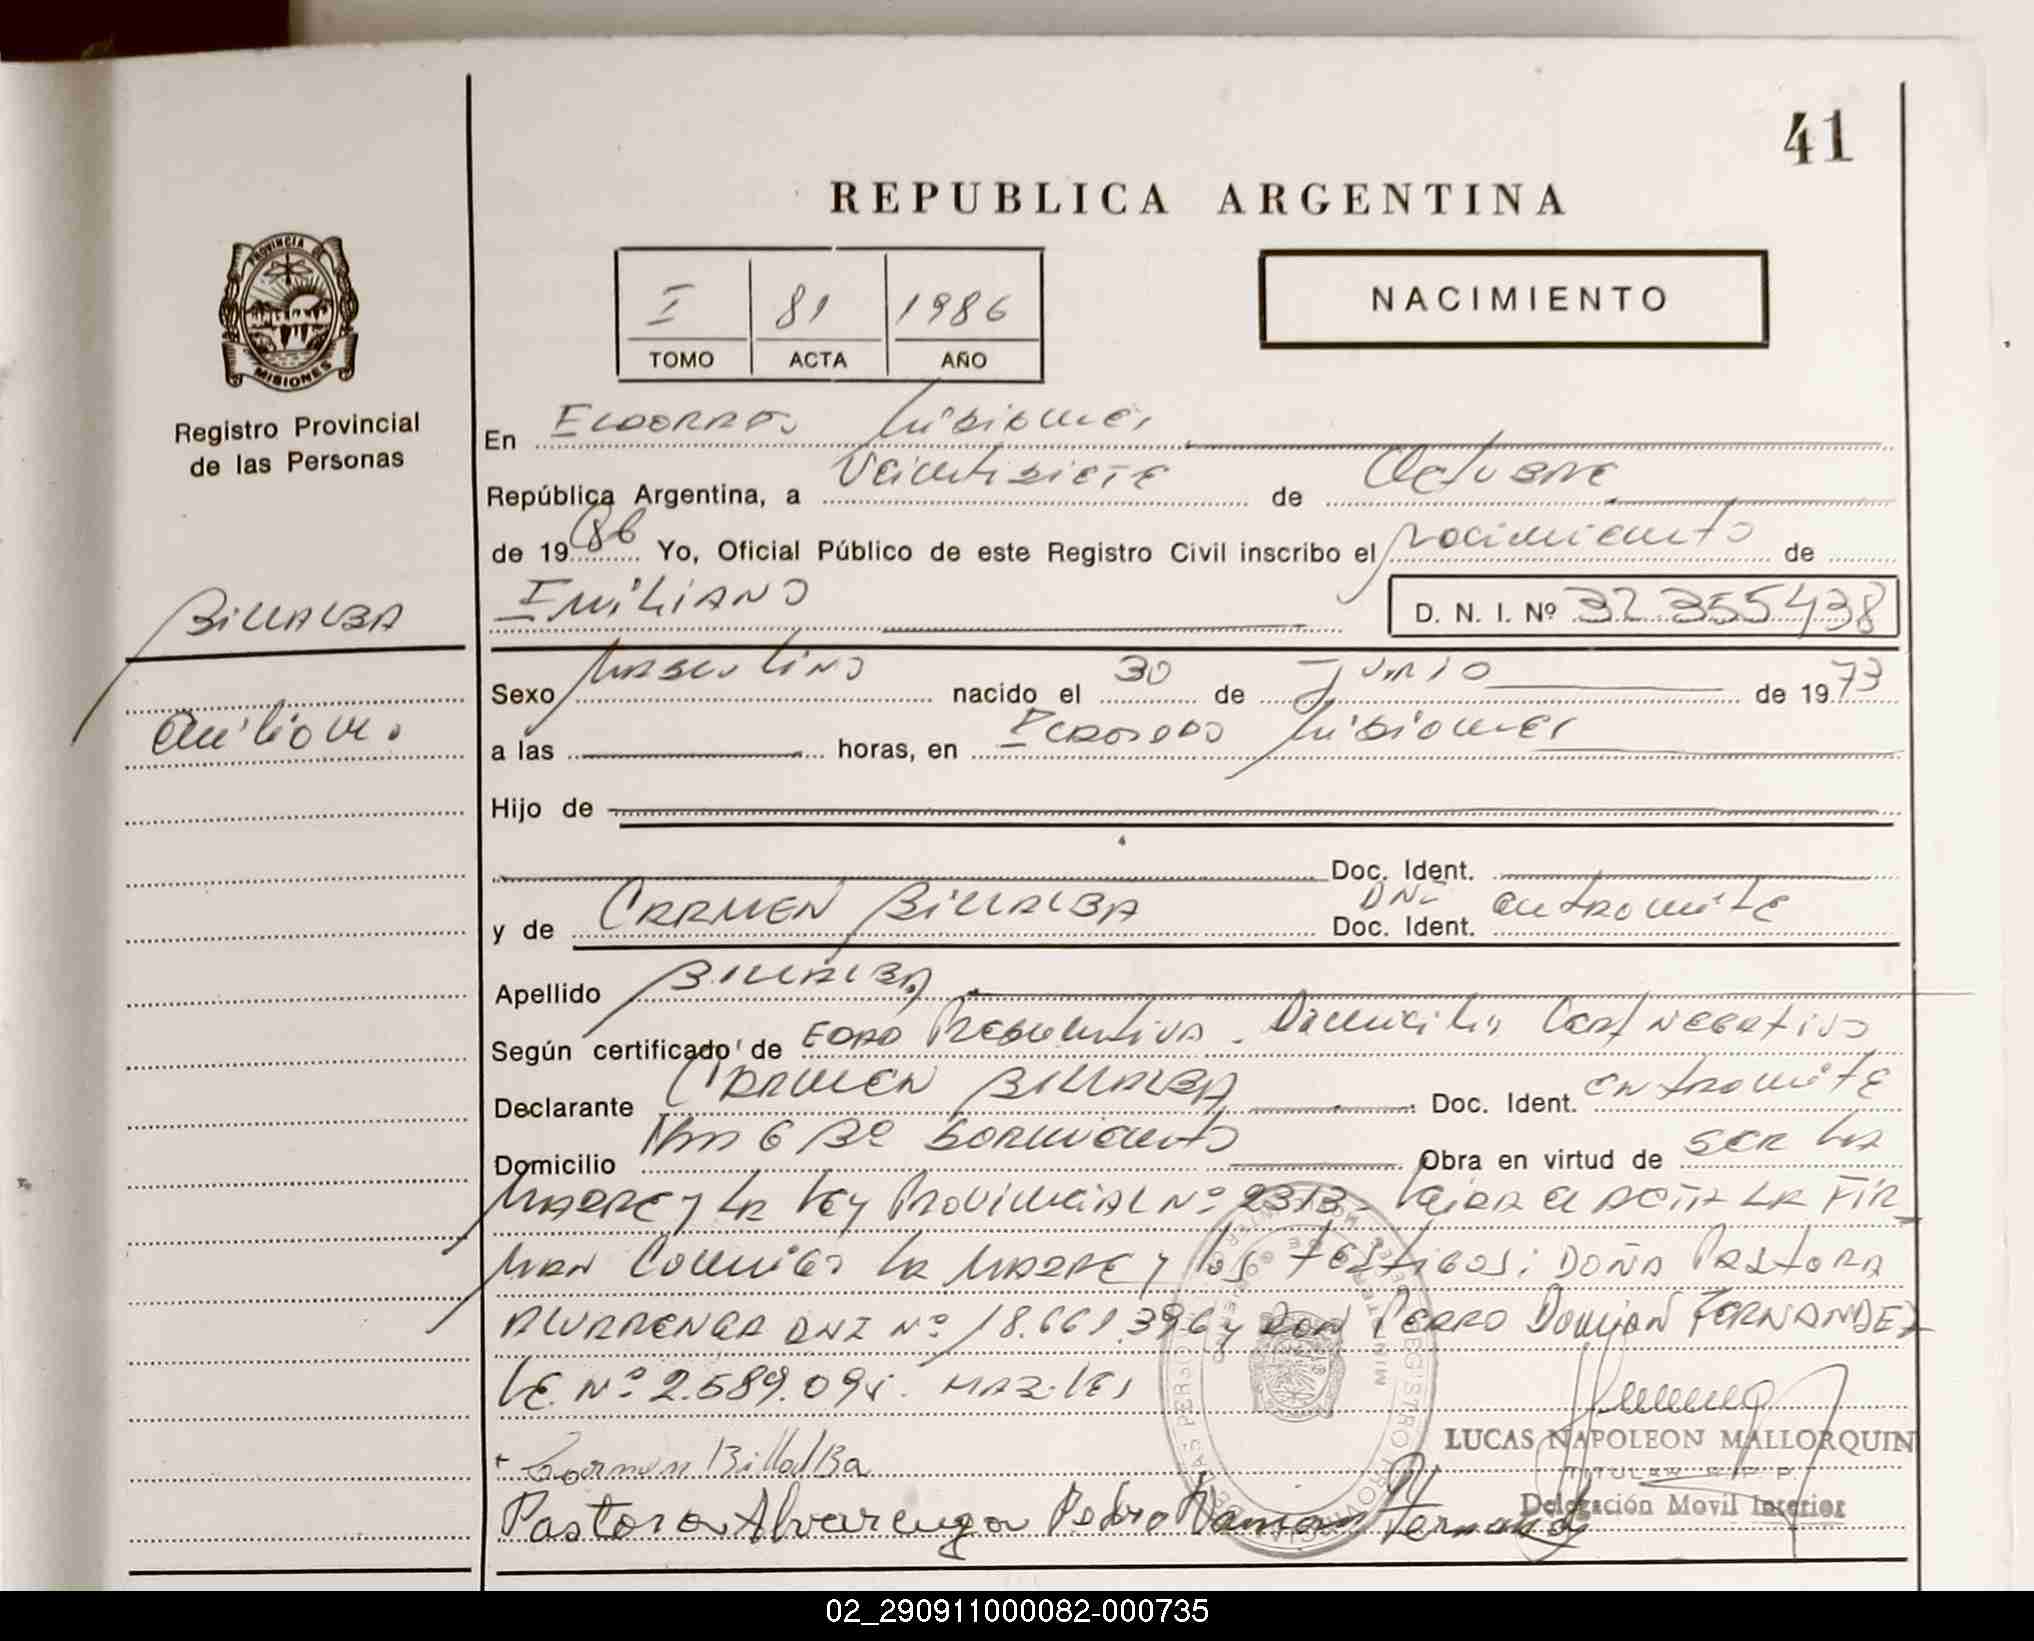 41
REPUBLICA ARGENTINA
PROVINCIA DE
MISIONES
Registro Provincial
de las Personas
I 81 1986
TOMO ACTA AÑO
NACIMIENTO
En ELDORADO Misiones
República Argentina, a Veintisiete de Octubre
de 1986 Yo, Oficial Público de este Registro Civil inscribo el nacimiento de
BILLALBA
EMILIANO D. N. I. Nº 32.355.438
Emiliano.
Sexo Masculino nacido el 30 de Junio de 1973
a las horas, en Eldorado Misiones
Hijo de
Doc. Ident.
y de CARMEN BILLALBA Doc. Ident. DNI entramite
Apellido BILLALBA
Según certificado de EDAD Presuntiva. Domicilio Cert Negativo
Declarante CARMEN BILLALBA Doc. Ident. entramite
Domicilio Km 6 Bº Sarmiento Obra en virtud de SER LA
MADRE y LA Ley PROVINCIAL Nº 2313. Leida el ACTA LA FIR
MAN Conmigo LA MADRE y los testigos: DOÑA PASTORA
ALVARENGA DNI Nº 18.661.396 y DON PEDRO Damian FERNANDEZ
LE. Nº 2.589.09
LUCAS NAPOLEON MALLORQUIN
TITULAR R. P. P.
Delegación Movil Interior
Carmen Billalba
Pastora Alvarenga Pedro Damian Fernandez
02_290911000082-000735